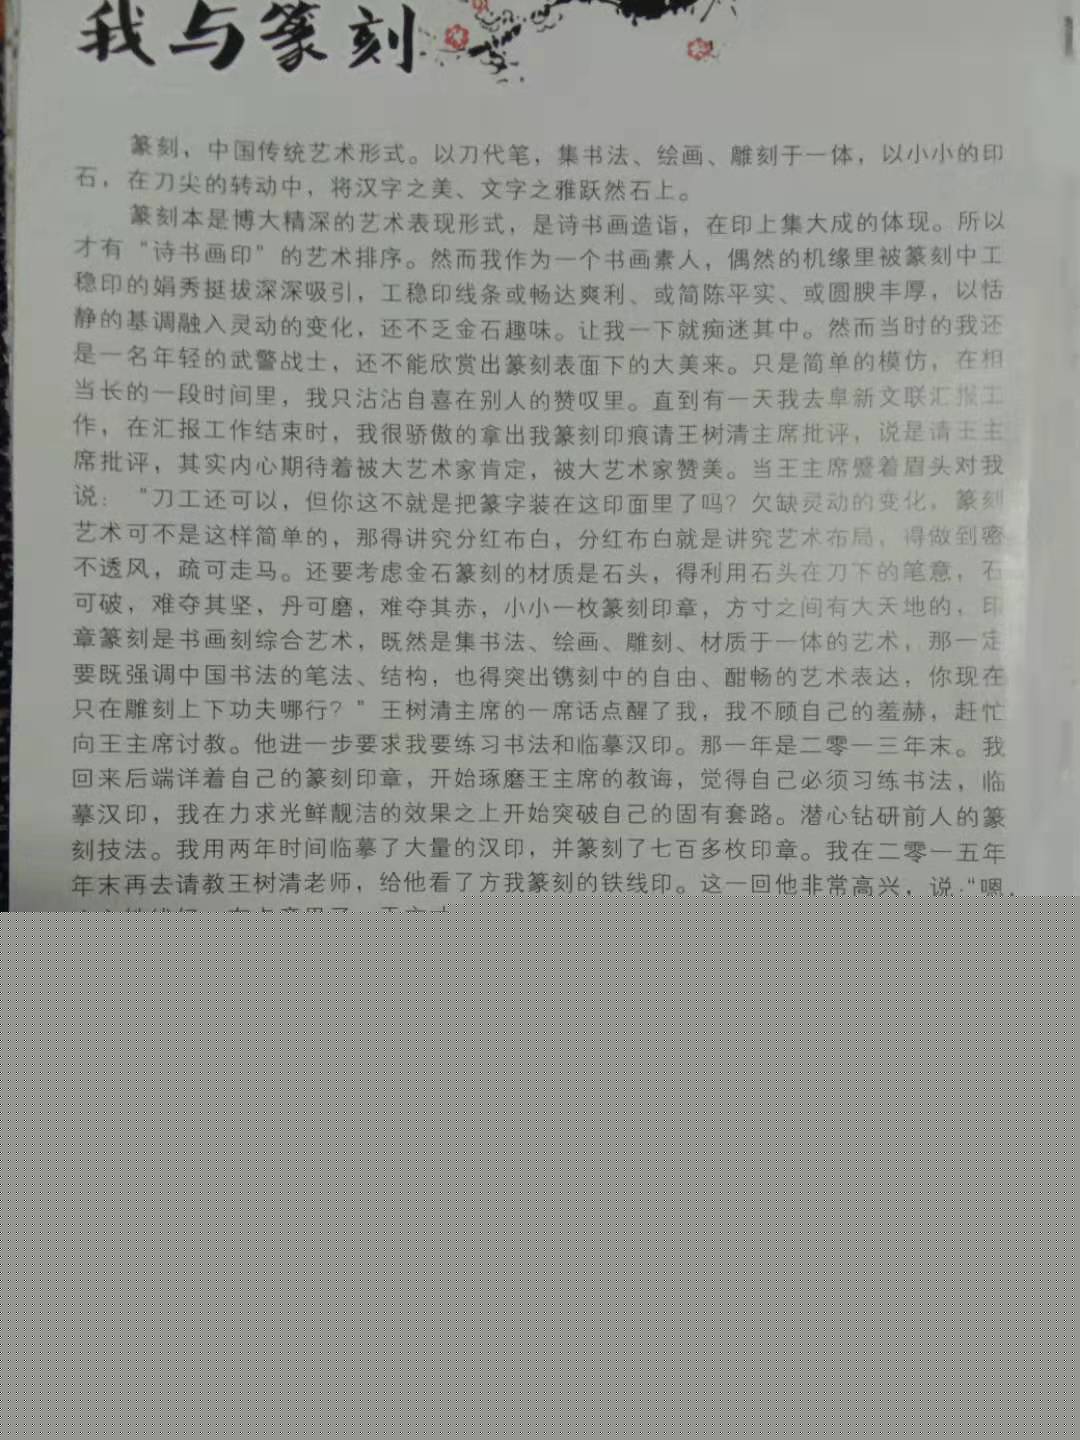 我与篆刻
篆刻，中国传统艺术形式。以刀代笔，集书法、绘画、雕刻于一体，以小小的印
石，在刀尖的转动中，将汉字之美、文字之雅跃然石上。
篆刻本是博大精深的艺术表现形式，是诗书画造诣，在印上集大成的体现。所以
才有“诗书画印”的艺术排序。然而我作为一个书画素人，偶然的机缘里被篆刻中工
稳印的娟秀挺拔深深吸引，工稳印线条或畅达爽利、或简陈平实、或圆腴丰厚，以恬
静的基调融入灵动的变化，还不乏金石趣味。让我一下就痴迷其中。然而当时的我还
是一名年轻的武警战士，还不能欣赏出篆刻表面下的大美来。只是简单的模仿，在相
当长的一段时间里，我只沾沾自喜在别人的赞叹里。直到有一天我去阜新文联汇报工
作，在汇报工作结束时，我很骄傲的拿出我篆刻印痕请王树清主席批评，说是请王主
席批评，其实内心期待着被大艺术家肯定，被大艺术家赞美。当王主席蹙着眉头对我
说：“刀工还可以，但你这不就是把篆字装在这印面里了吗？欠缺灵动的变化，篆刻
艺术可不是这样简单的，那得讲究分红布白，分红布白就是讲究艺术布局，得做到密
不透风，疏可走马。还要考虑金石篆刻的材质是石头，得利用石头在刀下的笔意，石
可破，难夺其坚，丹可磨，难夺其赤，小小一枚篆刻印章，方寸之间有大天地的，印
章篆刻是书画刻综合艺术，既然是集书法、绘画、雕刻、材质于一体的艺术，那一定
要既强调中国书法的笔法、结构，也得突出镌刻中的自由、酣畅的艺术表达，你现在
只在雕刻上下功夫哪行？”王树清主席的一席话点醒了我，我不顾自己的羞赫，赶忙
向王主席讨教。他进一步要求我要练习书法和临摹汉印。那一年是二零一三年末。我
回来后端详着自己的篆刻印章，开始琢磨王主席的教诲，觉得自己必须习练书法，临
摹汉印，我在力求光鲜靓洁的效果之上开始突破自己的固有套路。潜心钻研前人的篆
刻技法。我用两年时间临摹了大量的汉印，并篆刻了七百多枚印章。我在二零一五年
年末再去请教王树清老师，给他看了方我篆刻的铁线印。这一回他非常高兴，说“嗯，